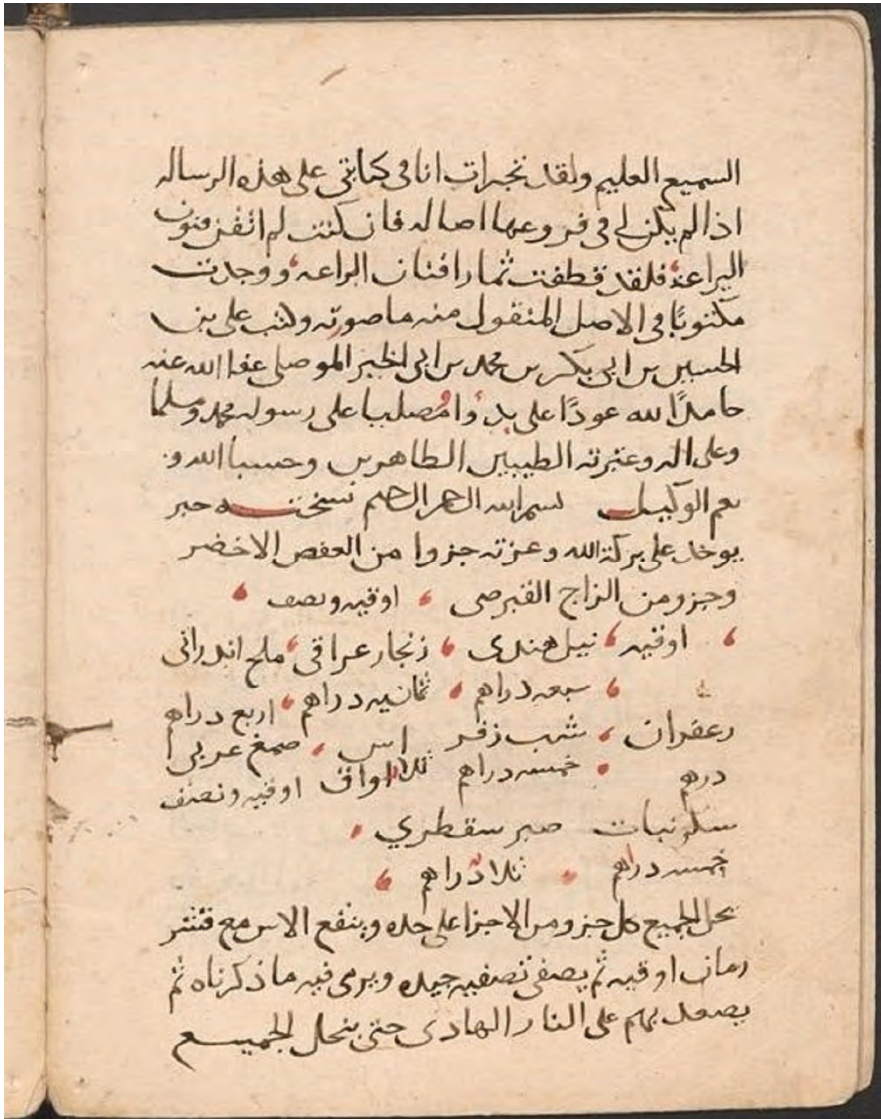 السميع العليم ولقد تجرات انا في كتابتي على هذه الرساله
اذا لم يكن لي في فروعها اصاله فان كنت لم اتقن فنون
البراعة فلقد قطفت ثمارا فنان البراعه ووجدت
مكتوبًا في الاصل المنقول منه ما صورته وكتب على بن
الحسين بن ابي بكر بن محمد بن ابي الخير الموصلي عفا الله عنه
حامدًا لله عودًا على بدء وامُصليا على رسوله محمد ومسلما
وعلى اله وعترته الطيبين الطاهرين وحسبنا الله و
نعم الوكيل بسم الله الرحمن الرحيم نسخة حبر
يوخد على بركة الله وعزته جزوا من العفص الاخضر
وجزو من الزاج القبرصى اوقيه ونصف
اوقيه نيل هندى زنجار عراقي ملح اندرانى
سبعه دراهم ثمانيه دراهم اربع دراهم
زعفران شب زفر اس صمغ عربي
درهم خمسه دراهم ثلاث اواق اوقيه ونصف
سكر نبات صبر سقطري
خمسه دراهم ثلاث دراهم
يحل الجميع كل جزو من الاجزا على حده وينقع الاس مع قشر
رمان اوقيه ثم يصفى تصفيه جيده ويرمى فيه ما ذكرناه ثم
يصعد بهم على النار الهادى حتى ينحل الجميع